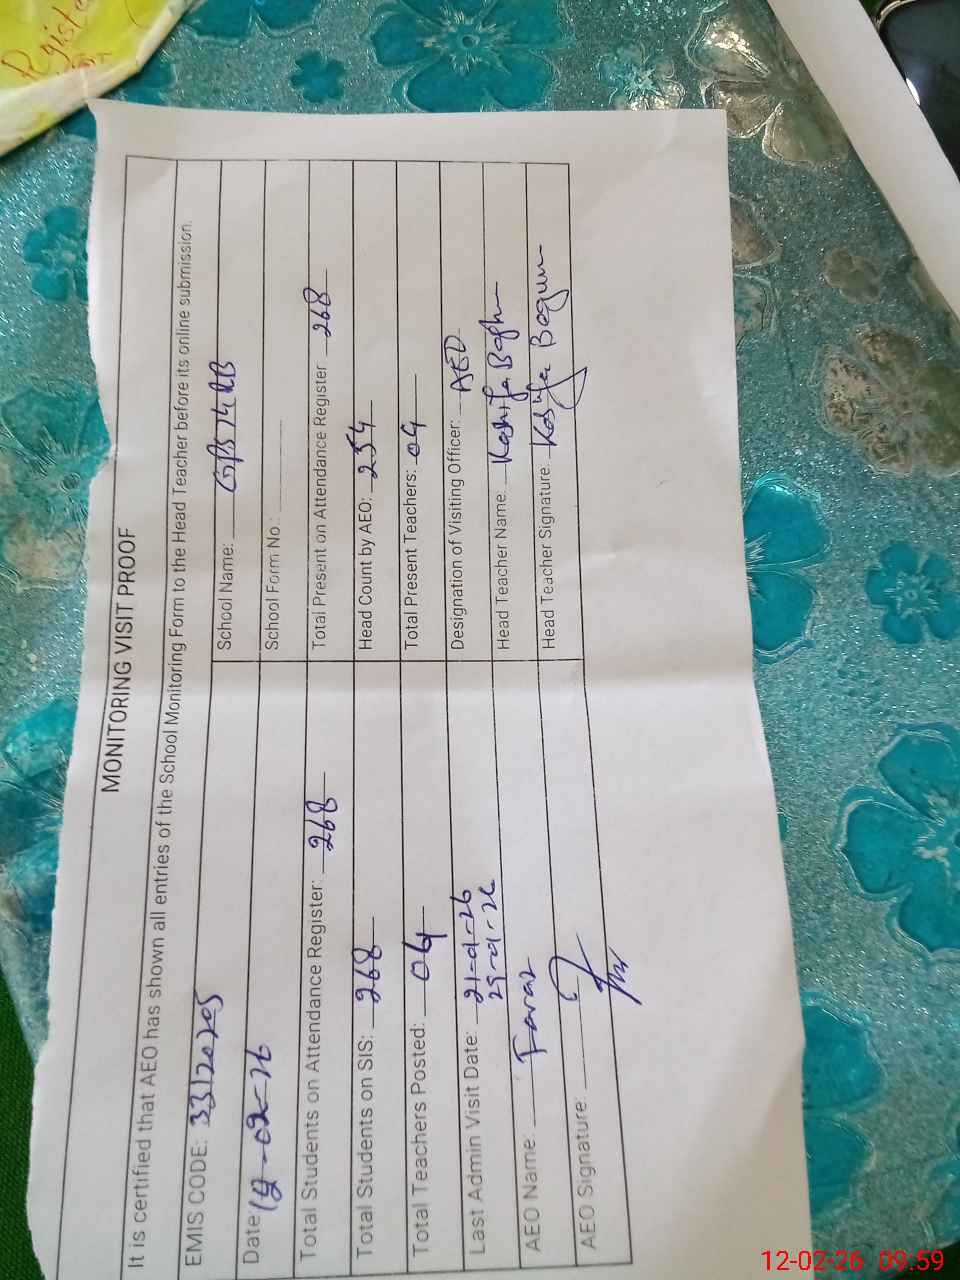 Register
MONITORING VISIT PROOF
It is certified that AEO has shown all entries of the School Monitoring Form to the Head Teacher before its online submission.
EMIS CODE: 33120205
School Name: GPS 74 RB
Date: 12-02-26
School Form No.:
Total Students on Attendance Register: 268
Total Present on Attendance Register 268
Total Students on SIS: 268
Head Count by AEO: 254
Total Teachers Posted: 04
Total Present Teachers: 04
Last Admin Visit Date: 21-01-26
29-01-26
Designation of Visiting Officer: AEO
AEO Name: Faraz
Head Teacher Name: Kashifa
AEO Signature:
Head Teacher Signature. Kashifa Begum
12-02-26 09.59